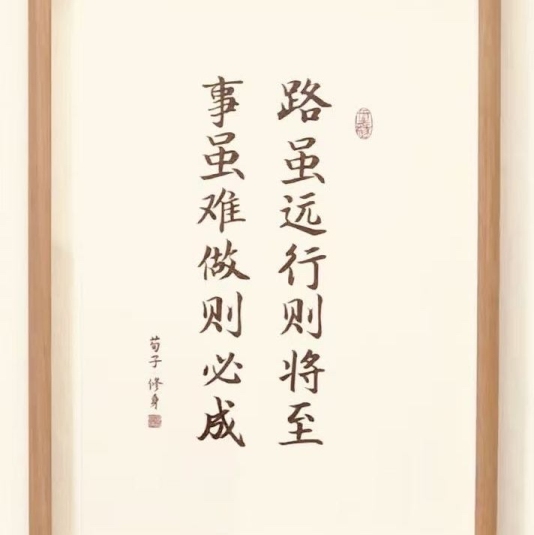 路虽远行则将至
事虽难做则必成
荀子 修身